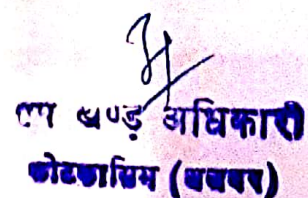 खण्ड अधिकारी
कोटकासिम (अलवर)